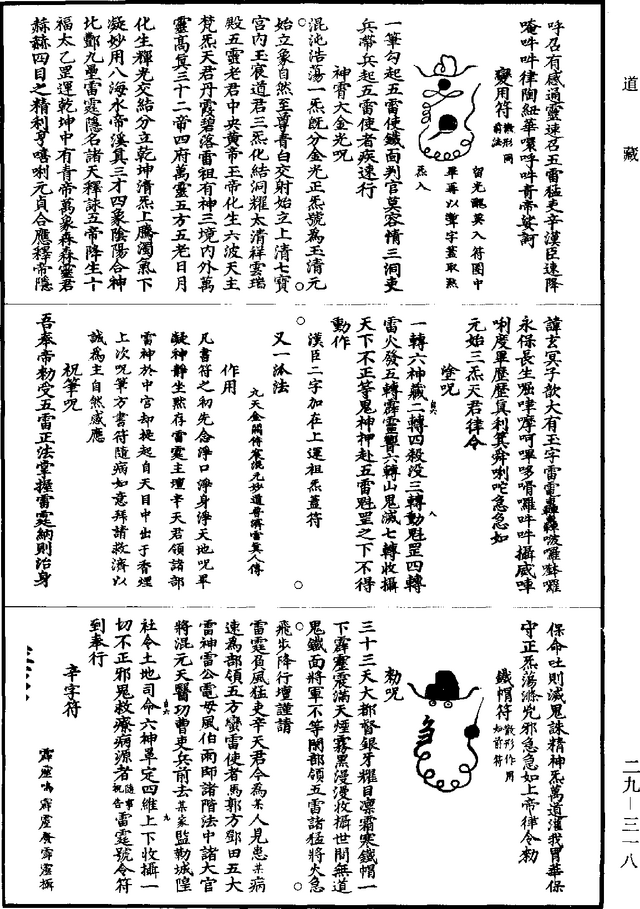 道藏
呼召有感通靈速召五雷猛吏辛漢臣速降
唵吽吽律陶紐華嚗呼吽青帝娑訶
變用符散形同前法
留光靦英入符圖中
畢再以聻字蓋取炁
炁入
一筆勾起五雷使鐵面判官莫容情三洞吏
兵帶兵起五雷使者疾速行
神霄大金光呪
混沌浩蕩一炁旣分金光正炁號爲玉清元
始立象自然至尊青白交射始立上清七寶
宮內玉宸道君三炁化結洞耀太清祥雲瑞
殿五靈老君中央黃帝玉帝化生六波天主
梵炁天君丹霞碧落雷祖有神三境内外萬
靈高真三十二帝四府萬靈五方五老日月
化生輝光交結分立乾坤清炁上騰濁氣下
凝妙用八海水帝溪真三才四象陰陽合神
北酆九壘雷霆隱名諸天釋詠五帝降生十
福太乙罡運乾坤中有青帝萬象森森靈君
赫赫四目之精利亨嘻唎元貞合應釋帝隱
諱玄冥子歆大有玉字雷電轟轟啵囉𫆏囉
永保長生𠺁㖀摩呵嗶哆嗗囉吽吽攝威唓
唎度畢歷歷真利箕舜唎咜急急如
元始三炁天君律令
塗呪
一轉六神藏二轉四殺没三轉動魁罡四轉
雷火發五轉霹靂響六轉山鬼滅七轉收攝
天下不正等鬼神押赴五雷魁罡之下不得
動作
漢臣二字加在上運祖炁蓋符
又一派法
九天金闕侍宸混元妙道普濟雷真人傳
作用
凡書符之初先念淨口淨身淨天地呪畢
凝神靜坐黙存雷霆主壇辛天君領諸部
雷神於中宮却提起自天目中出于香煙
上次呪筆方書符隨病如意拜諸救濟以
誠爲主自然感應
祝筆呪
吾奉帝勑受五雷正法掌握雷霆納則治身
保命吐則滅鬼誅精神炁萬道灌我胃華保
守正炁蕩滌兇邪急急如上帝律令勑
鐵帽符散形作用如前符
勑呪
三十三天大都督銀牙耀目凛霜寒鐵帽一
下霹靂震滿天煙霧黑漫漫收攝世間無道
鬼鐵面將軍不等閑部領五雷諸猛將火急
飛步降行壇謹請
雷霆負風猛吏辛天君今爲某人見患某病
速爲部領五方蠻雷使者馬郭方鄧田五大
雷神雷公電母風伯雨師諸階法中諸大官
將混元天醫功曹吏兵前去某家監勒城隍
社令土地司命六神罩定四維上下收攝一
切不正邪鬼救療病源者隨事祝告雷霆號令符
到奉行
辛字符
霹靂鳴霹靂聲霹靂攝
二九—三一八